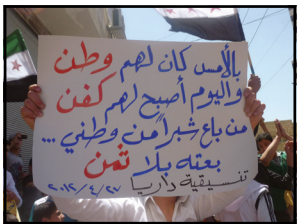 بالأمس كان لهم وطن
واليوم أصبح لهم كفن
من باع شبراً من وطني ...
بعته بلا ثمن
تنسيقية داريا
٢٠١٢/٤/٢٧